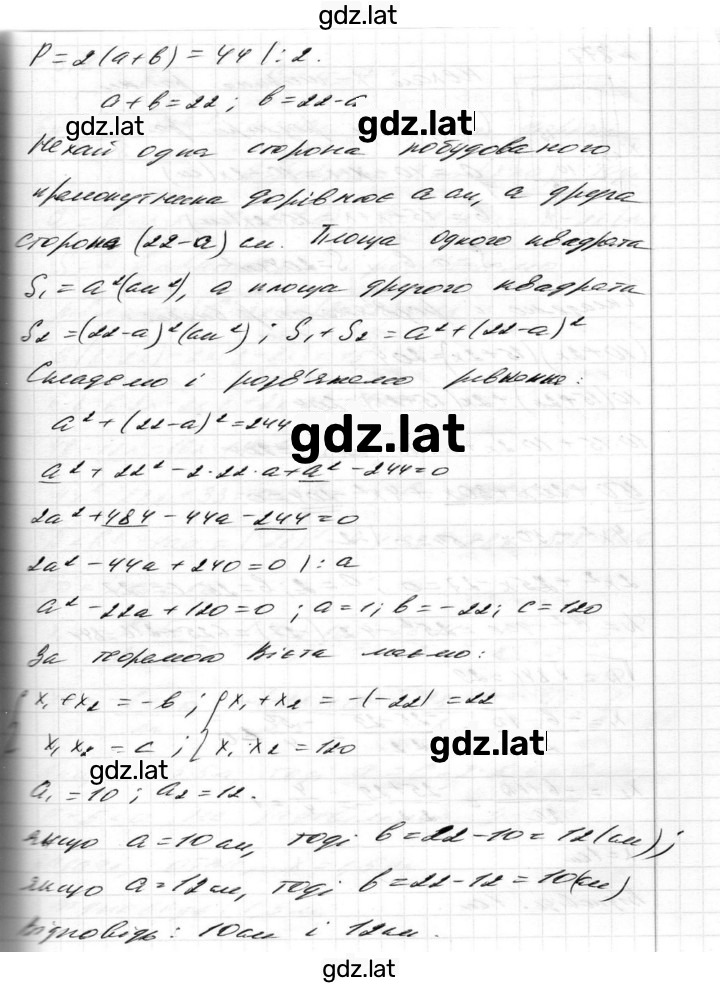 gdz.lat
P = 2(a+b) = 44 /:2.
a+b=22; b=22-a
gdz.lat gdz.lat
Нехай одна сторона побудованого
прямокутника дорівнює a см, а друга
сторона (22-a) см. Площа одного квадрата
S₁ = a²(см²), а площа другого квадрата
S₂ = (22-a)²(см²); S₁ + S₂ = a² + (22-a)²
Складемо і розв'яжемо рівняння:
a² + (22-a)² = 244
gdz.lat
a² + 22² - 2·22·a + a² - 244 = 0
2a² + 484 - 44a - 244 = 0
2a² - 44a + 240 = 0 /: 2
a² - 22a + 120 = 0; a = 1; b = -22; c = 120
За теоремою Вієта маємо:
{ x₁ + x₂ = -b; { x₁ + x₂ = -(-22) = 22
x₁ x₂ = c; { x₁ · x₂ = 120
gdz.lat gdz.lat
a₁ = 10; a₂ = 12.
якщо a = 10 см, тоді b = 22 - 10 = 12 (см);
якщо a = 12 см, тоді b = 22 - 12 = 10 (см)
Відповідь: 10 см і 12 см.
gdz.lat